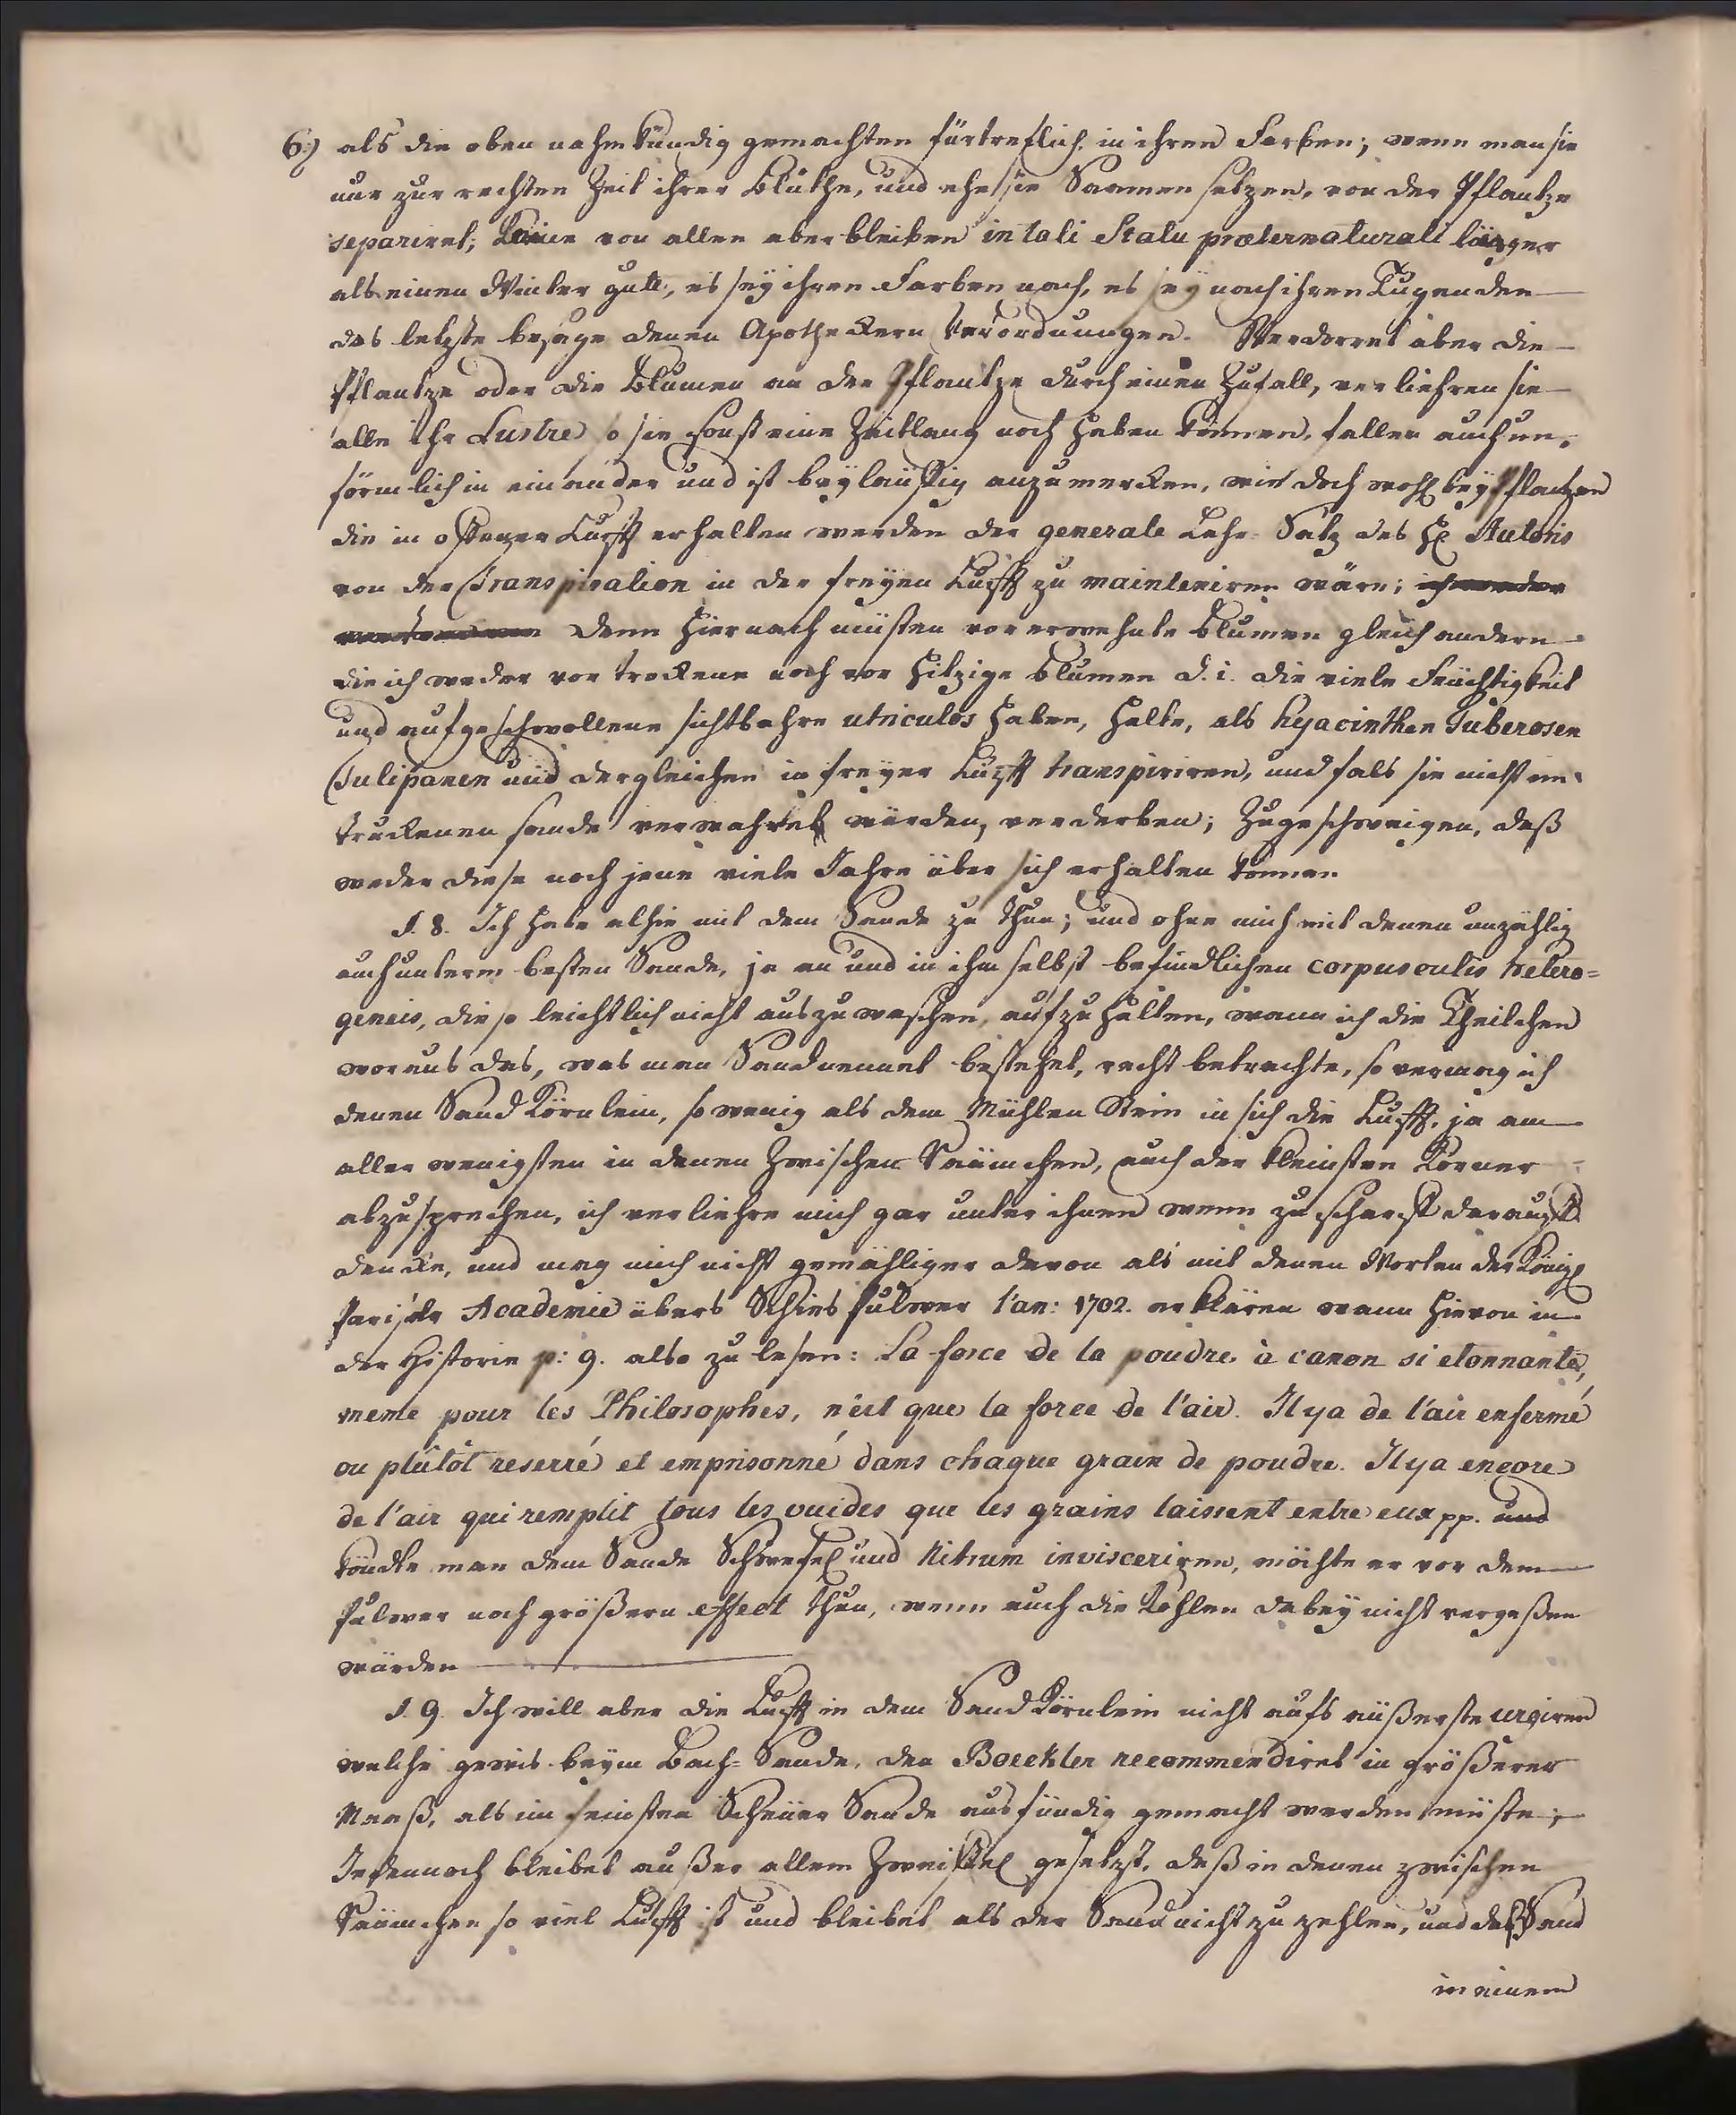 6.) als die oben nahmkündig gemachten fürtreflich in ihren Farben; wenn man sie
nur zur rechten Zeit ihrer Blüthe, und ehe sie Saamen setzen, von der Pflantze
separiret; Keine von allen aber bleiben in tali Statu præternaturali länger
als einen Winter gut, es sey ihren Farben nach, es sey nach ihren Tugenden
das letzte besage denen Apotheckern Verordnungen. Verdorret aber die
Pflantze oder die Blumen an der Pflantze durch einen Zufall, verliehren sie
alle ihr Lustre so sie sonst eine Zeitlang noch haben können, fallen auch un-
förmlich in einander und ist beyläuffig anzumercken, wie doch wohl bey Pflantzen
die in offener Lufft erhalten werden der generale Lehr-Satz des H. Autoris
von der Transpiration in der freyen Lufft zu mainteniren wäre;
denn hiernach müsten vorerwehnte Blumen gleich andern
die ich weder vor trockene noch vor hitzige Blumen d. i. die viele Feuchtigkeit
und aufgeschwollene sichtbahre utriculos haben, halte, als Hyacinthen Tuberosen
Tulipanen und dergleichen in freyer Lufft transpiriren, und fals sie nicht im
truckenen Sande verwahret würden, verderben; Zugeschweigen, daß
weder diese noch jene viele Jahre über sich erhalten können.
§. 8. Ich habe alhie mit dem Sande zu thun; und ohne mich mit denen unzählig
auch unterm besten Sande, ja an und in ihm selbst befindlichen corpusculis hetero=
geneis, die so leichtlich nicht auszuwaschen, aufzuhalten, wann ich die Theilchen
woraus das, was man Sand nennet bestehet, recht betrachte, so vermag ich
denen Sand Körnlein, so wenig als dem Mühlen Stein in sich die Lufft, ja am
aller wenigsten in denen Zwischen Räumchen, auch der kleinsten Körner
abzusprechen, ich verliehre mich gar unter ihnen wenn zu scharff darauff
dencke, und mag mich nicht gemähliger davon als mit denen Worten der Königl
Pariser Academie übers Schies Pulwer l'an: 1702. erklären wann hievon in
der Historie p: 9. also zu lesen: La force de la poudre à canon si etonnante,
meme pour les Philosophes, n'est que la force de l'air. Il y a de l'air enfermé
ou plûtôt reserré et emprisonné dans chaque grain de poudre. Il y a encore
de l'air qui remplit tous les vuides que les grains laissent entre eux pp. und
köndte man dem Sande Schwefel und Nitrum invisceriren, möchte er vor dem
Pulwer noch größern effect thun, wenn auch die Kohlen dabey nicht vergeßen
würden
§. 9. Ich will aber die Lufft in dem Sand Körnlein nicht aufs äußerste urgiren
welche gewis beym Bach-Sande, den Boeckler recommendiret in größerer
Maaß, als im feinsten Scheuer Sande ausfündig gemacht werden müste;
Jedennoch bleibet außer allem Zweiffel gesetzt, daß in denen zwischen
Räumchen so viel Lufft ist und bleibet als der Sand nicht zu zehlen, und daß Sand
in einem